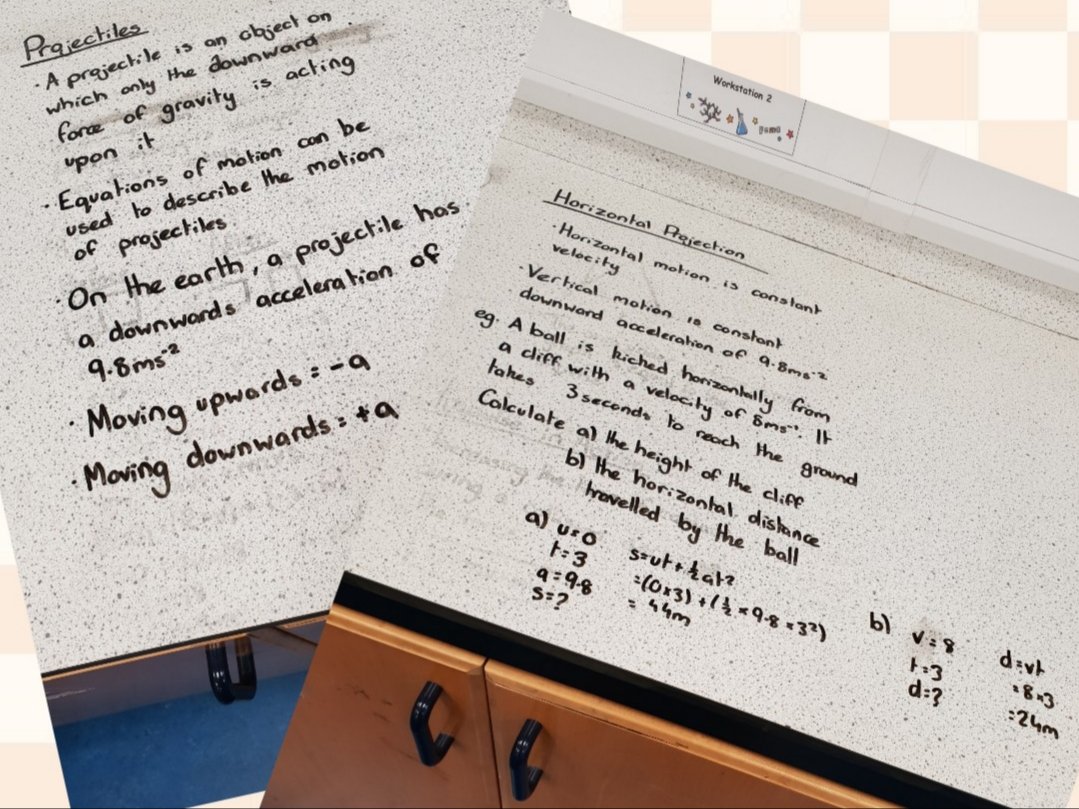 Projectiles
· A projectile is an object on
which only the downward
force of gravity is acting
upon it
· Equations of motion can be
used to describe the motion
of projectiles
· On the earth, a projectile has
a downwards acceleration of
9.8ms⁻²
· Moving upwards = -a
· Moving downwards = +a
Workstation 2
Horizontal Projection
· Horizontal motion is constant
velocity
· Vertical motion is constant
downward acceleration of 9.8ms⁻²
eg. A ball is kicked horizontally from
a cliff with a velocity of 8ms⁻¹. It
takes 3 seconds to reach the ground
Calculate a) the height of the cliff
b) the horizontal distance
travelled by the ball
a) u=0 s=ut+½at²
t=3 =(0×3)+(½×9.8×3²)
a=9.8 = 44m
s=?
b) v=8 d=vt
t=3 =8×3
d=? =24m